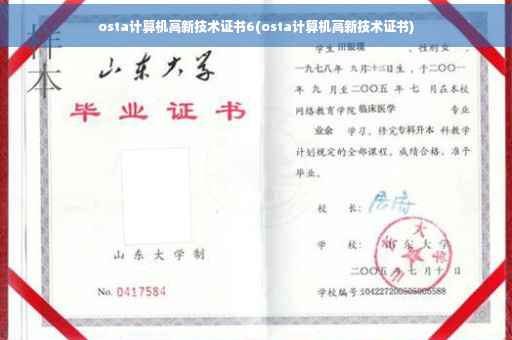 osta计算机高新技术证书6(osta计算机高新技术证书)
样本
山东大学
毕业证书
山东大学制
No. 0417584
学生
一九七八年 九月十三日生，于二〇〇一
年 九 月至二〇〇五 年 七 月在本校
网络教育学院 临床医学 专业
业余 学习，修完专科升本 科教学
计划规定的全部课程，成绩合格，准予
毕业。
校 长：
学 校：山东大学
二〇〇五 年 七 月 十 日
学校编号: